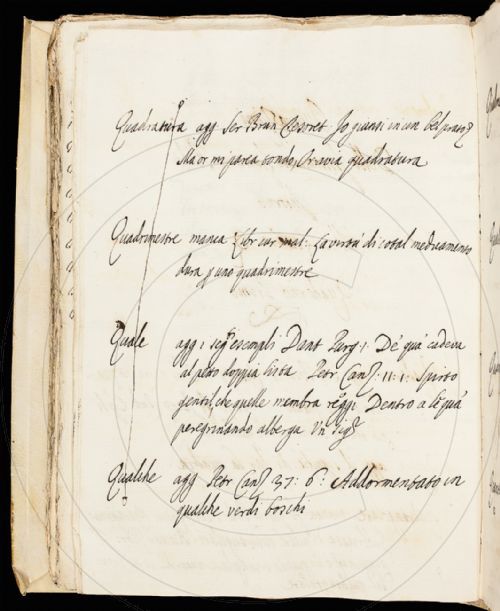 Quadratura agg Ser Brun Tesoret Jo giunsi in un bel prato
Ma or mi parea tondo, Or avia quadratura
Quadrimestre manca Libr cur mal: La virtù di cotal medicamento
dura p uno quadrimestre
Quale agg i segti esempli Dant Purg: 1: De' qua' cadeva
al petto doppia lista Petr Canz: 11: 1: Spirto
gentil, che quelle membra reggi Dentro a le qua'
peregrinando alberga Un Sigr
Qualche agg Petr Canz 37: 6: Addormentato in
qualche verdi boschi